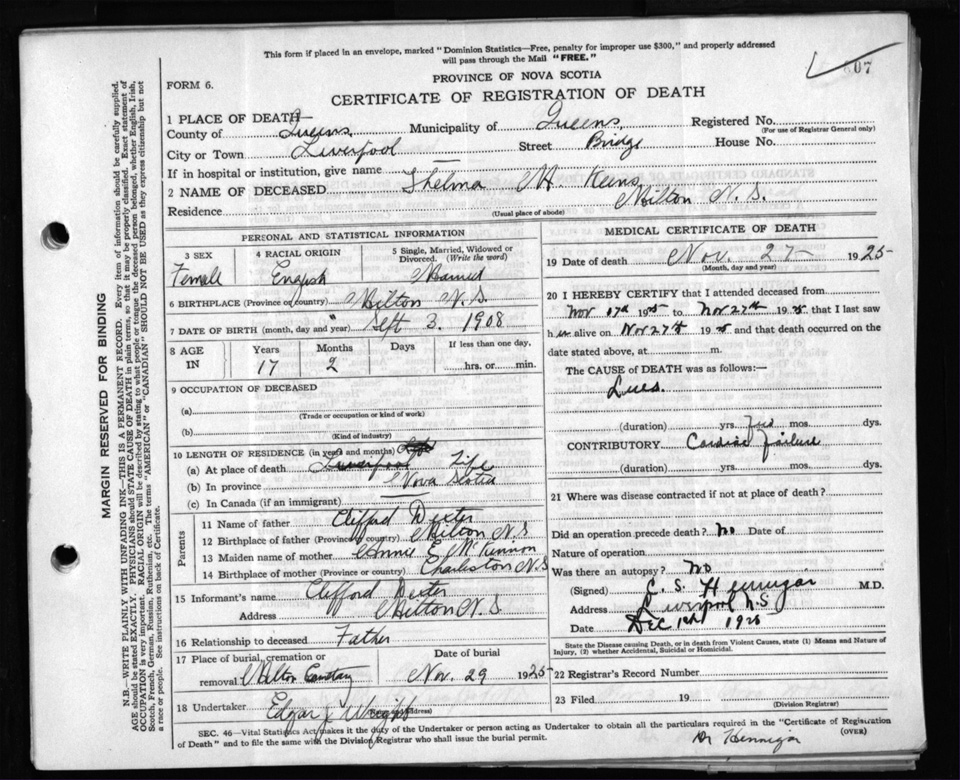 This form if placed in an envelope, marked "Dominion Statistics—Free, penalty for improper use $300," and properly addressed
will pass through the Mail "FREE."
607
PROVINCE OF NOVA SCOTIA
FORM 6.
CERTIFICATE OF REGISTRATION OF DEATH
1 PLACE OF DEATH—
County of Queens Municipality of Queens Registered No.
(For use of Registrar General only)
City or Town Liverpool Street Bridge House No.
If in hospital or institution, give name —
2 NAME OF DECEASED Thelma H. Keens
Residence Milton N. S.
(Usual place of abode)
PERSONAL AND STATISTICAL INFORMATION
3 SEX 4 RACIAL ORIGIN 5 Single, Married, Widowed or Divorced. (Write the word)
Female English Married
6 BIRTHPLACE (Province or country) Milton N. S.
7 DATE OF BIRTH (month, day and year) Sept 3. 1908
8 AGE IN Years Months Days If less than one day,
17 2 hrs. or min.
9 OCCUPATION OF DECEASED
(a)
(Trade or occupation or kind of work)
(b)
(Kind of industry)
10 LENGTH OF RESIDENCE (in years and months)
(a) At place of death Liverpool Life
(b) In province Nova Scotia
(c) In Canada (if an immigrant) —
Parents
11 Name of father Clifford Dexter
12 Birthplace of father (Province or country) Milton N.S
13 Maiden name of mother Annie E.
14 Birthplace of mother (Province or country) Charleston N.S
15 Informant's name Clifford Dexter
Address Milton N. S.
16 Relationship to deceased Father
17 Place of burial, cremation or removal Date of burial
Milton Nov. 29 1925
18 Undertaker Edgar J. Wright
(Address)
MEDICAL CERTIFICATE OF DEATH
19 Date of death Nov. 27 1925
(Month, day and year)
20 I HEREBY CERTIFY that I attended deceased from
Nov 17th 1925 to Nov 27th 1925, that I last saw
her alive on Nov 27th 1925 and that death occurred on the
date stated above, at m.
The CAUSE of DEATH was as follows:—
Lues
(duration) yrs. mos. dys.
CONTRIBUTORY Cardiac failure
(duration) yrs. mos. dys.
21 Where was disease contracted if not at place of death?
Did an operation precede death? No Date of
Nature of operation
Was there an autopsy? No
(Signed) C. S. Hennigar M.D.
Address Liverpool N.S
Date Dec 1925
State the Disease causing Death, or in death from Violent Causes, state (1) Means and Nature of
Injury, (2) whether Accidental, Suicidal or Homicidal.
22 Registrar's Record Number
23 Filed 19
(Division Registrar)
SEC. 46—Vital Statistics Act makes it the duty of the Undertaker or person acting as Undertaker to obtain all the particulars required in the "Certificate of Registration
of Death" and to file the same with the Division Registrar who shall issue the burial permit. (OVER)
Dr Hennigar
MARGIN RESERVED FOR BINDING
N.B.—WRITE PLAINLY WITH UNFADING INK—THIS IS A PERMANENT RECORD. Every item of information should be carefully supplied.
AGE should be stated EXACTLY. PHYSICIANS should STATE CAUSE OF DEATH in plain terms, so that it may be properly classified. Exact statement of
OCCUPATION is very important. RACIAL ORIGIN will be described by stating to what people or tongue the deceased person belonged, whether English, Irish,
Scotch, French, German, Russian, Ruthenian, etc. The terms "AMERICAN" or "CANADIAN" SHOULD NOT BE USED as they express citizenship but not
a race or people. See instructions on back of Certificate.